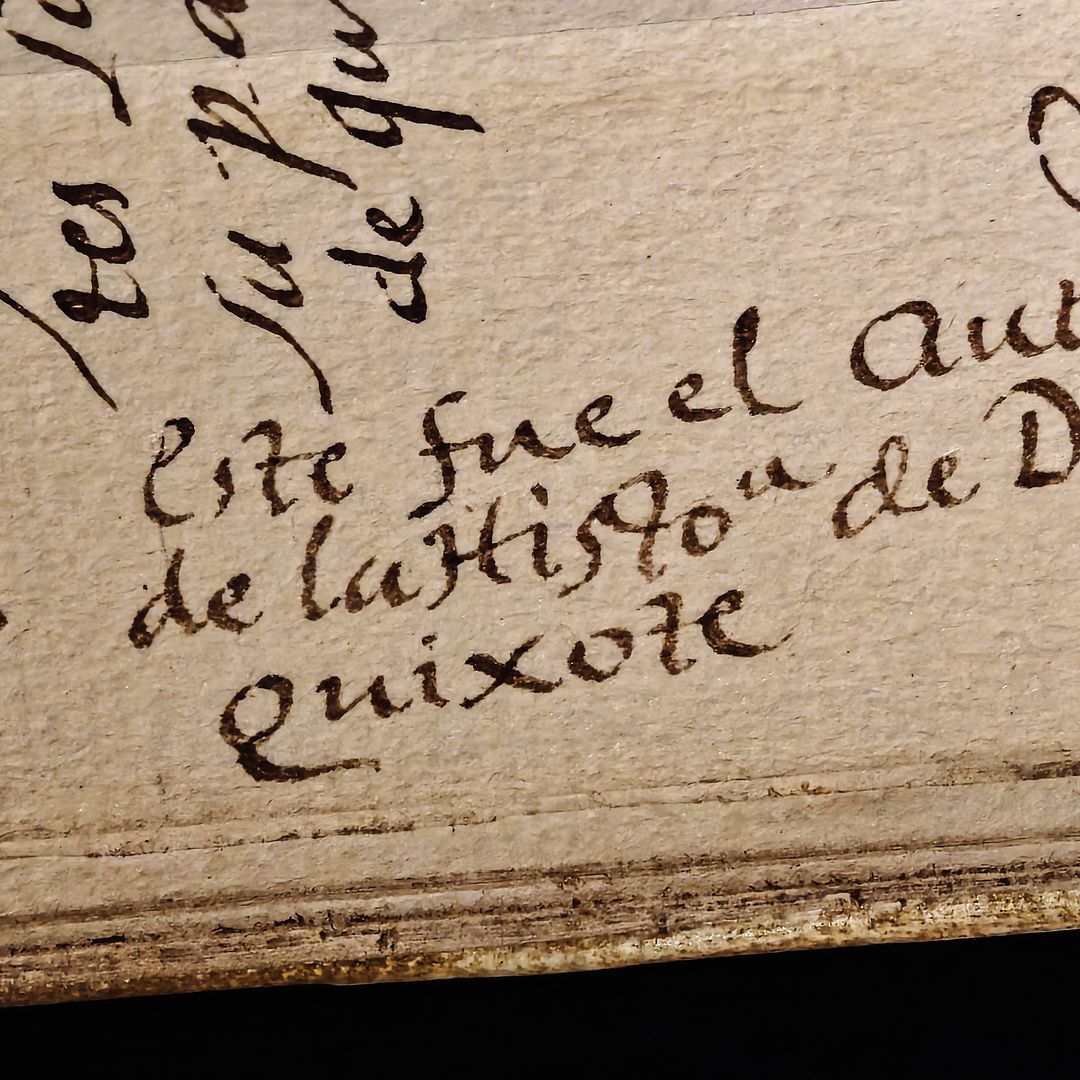 Este fue el Aut
de la Histoᵃ de D
Quixote
su pa
de qu